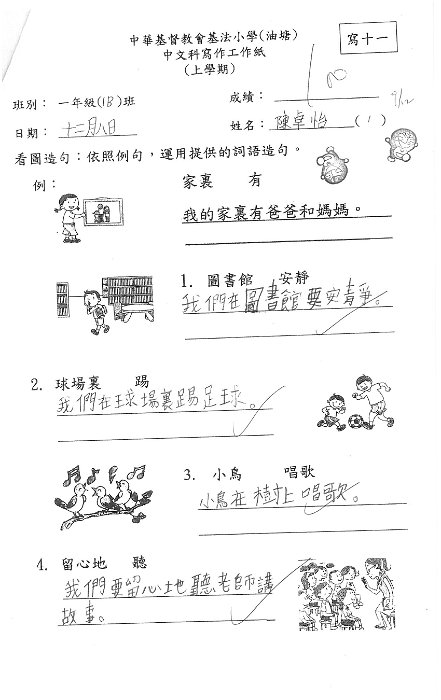 中華基督教會基法小學(油塘)
中文科寫作工作紙
(上學期)
寫十一
班別： 一年級(1B)班
成績： 10
9/12
日期： 十二月八日
姓名： 陳卓怡 (1)
看圖造句：依照例句，運用提供的詞語造句。
例：
家裏 有
我的家裏有爸爸和媽媽。
1. 圖書館 安靜
我們在圖書館要安靜。
2. 球場裏 踢
我們在球場裏踢足球。
3. 小鳥 唱歌
小鳥在樹上唱歌。
4. 留心地 聽
我們要留心地聽老師講
故事。